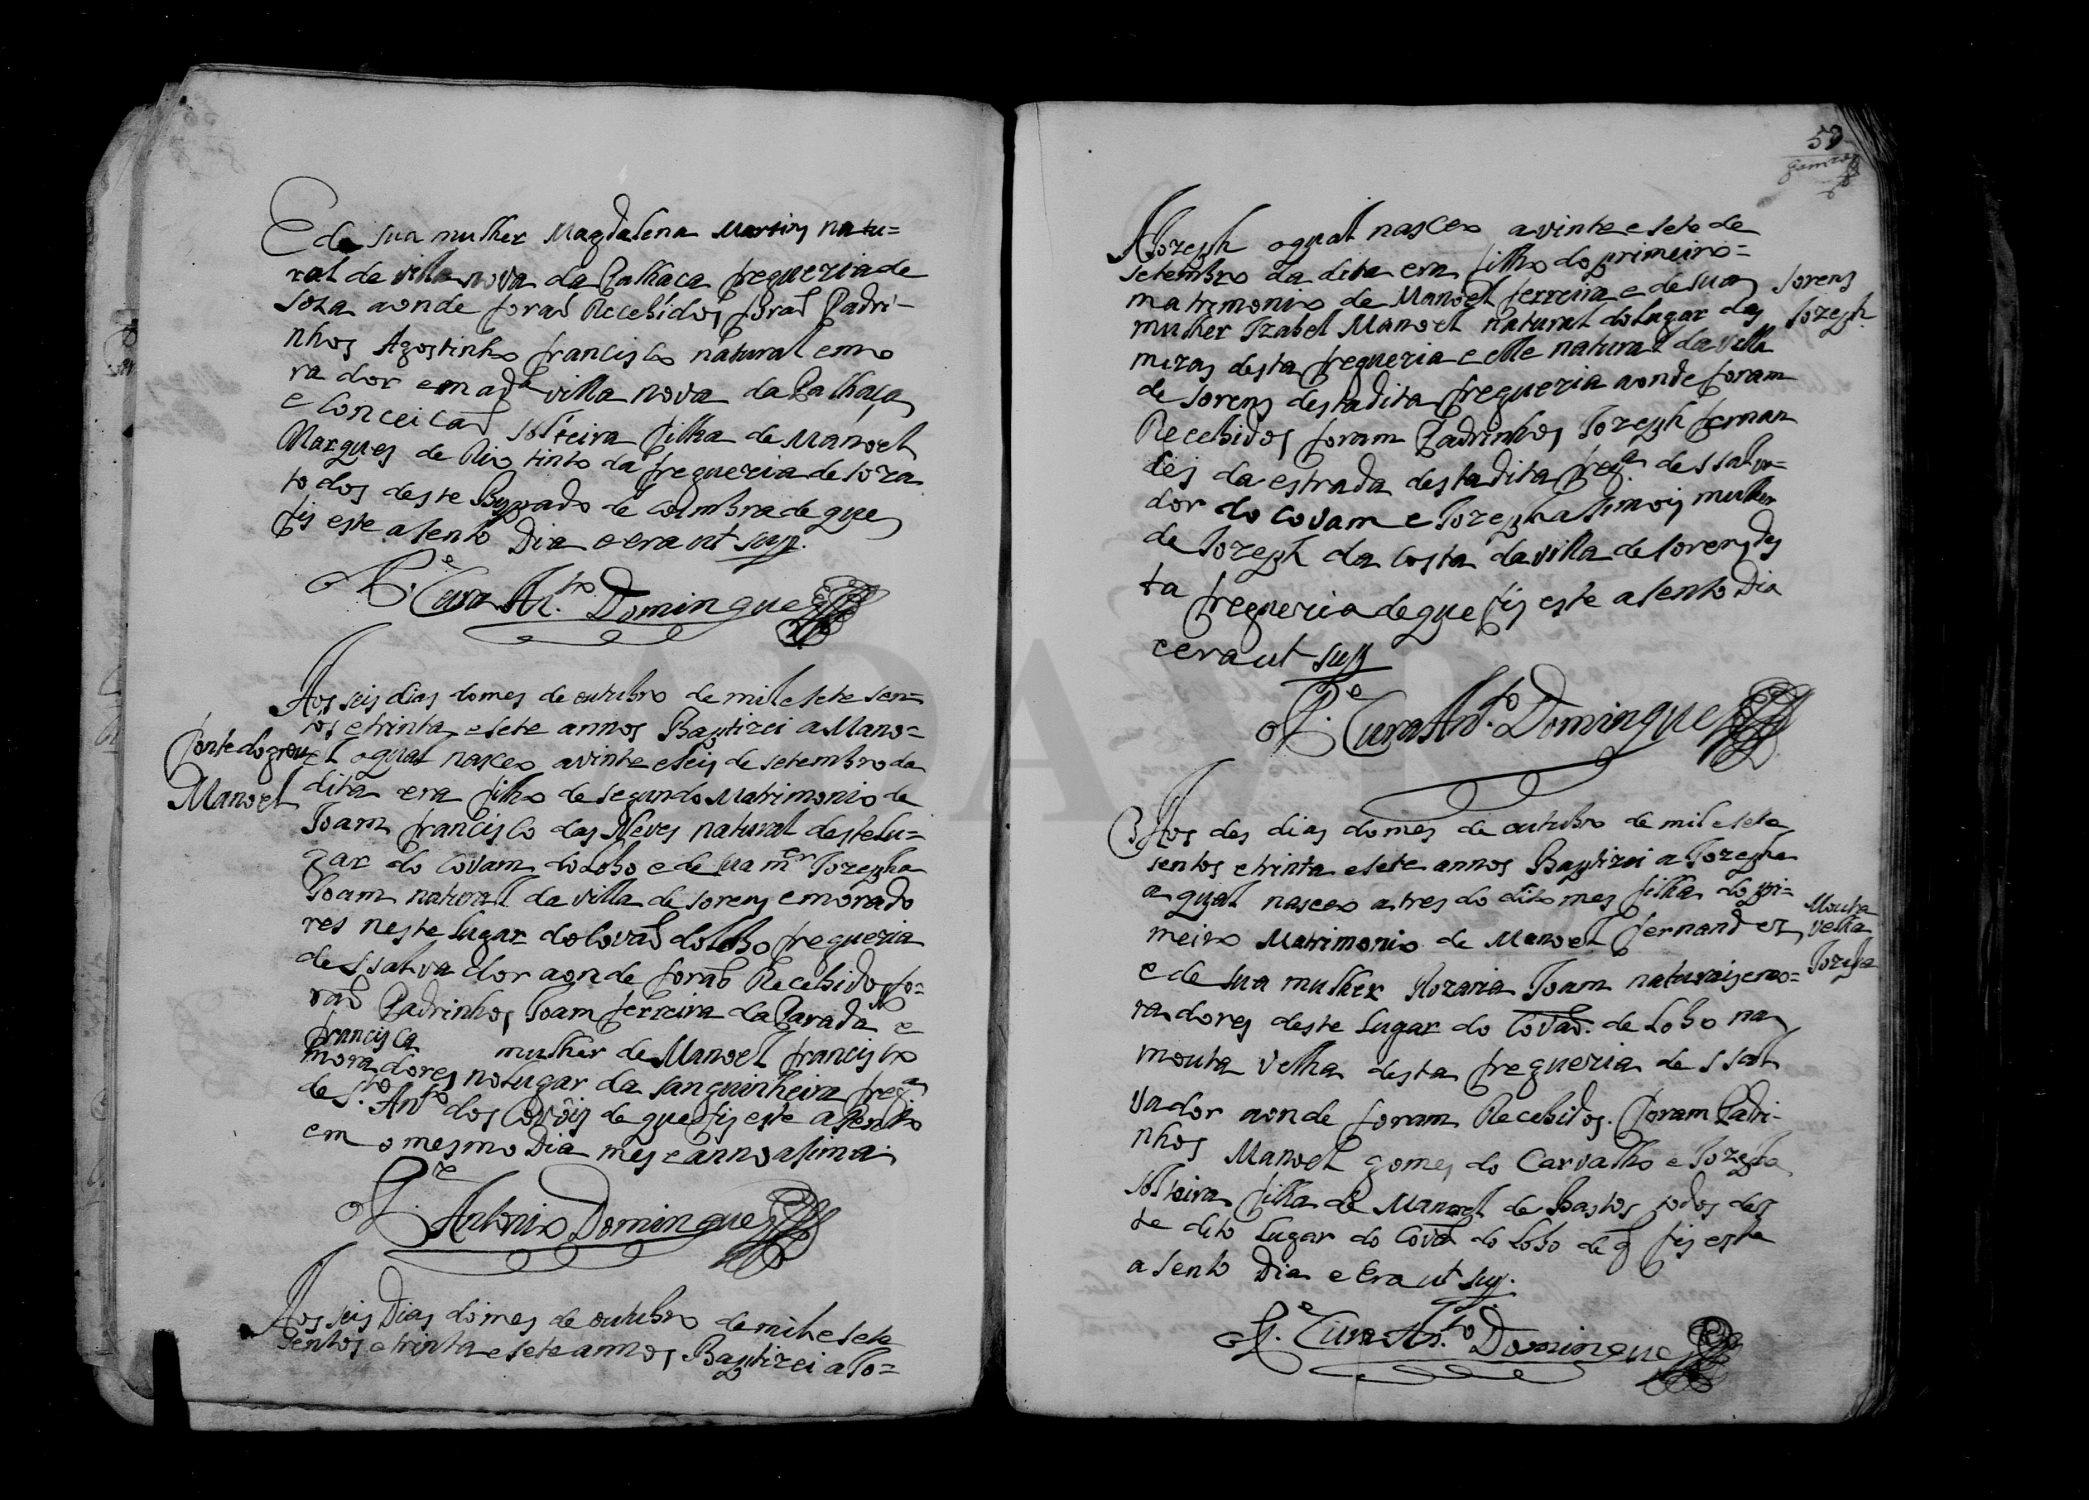 E de sua mulher Magdalena Martins natu=
ral de villa nova da Palhaca freguezia de
Soza aonde foraõ Recebidos foraõ Padri-
nhos Agostinho francisco natural e mo
rador em a dª villa nova da Palhaça
e Conceicaõ solteira filha de Manoel
Marques de Rio tinto da freguezia de Soza
todos deste Bispado de Coimbra de que
fis este asento Dia e era ut sup.
O P.e Cura An.to Domingues
Aos seis dias do mes de outubro de mil e sete sen=
tos e trinta e sete annos Baptizei a Mano=
Fonte do grou
el o qual nasceo a vinte e seis de setembro da
Manoel
dita era filho de segundo Matrimonio de
Joam francisco das Neves natural deste lu=
gar do Covam do Lobo e de sua m.er Jozepha
Joam natural da villa de Sorens e morado
res neste Lugar do Covaõ do Lobo freguezia
de S salvador aonde foraõ Recebidos fo=
raõ Padrinhos Joam ferreira da Parada e
francisca mulher de Manoel francisco
moradores no Lugar da sanguinheira freg.a
de S.to An.to dos Covõis de que fis este asento
em o mesmo Dia mes e anno asima
O P.e Antonio Domingues
Aos seis Dias do mes de outubro de mil e sete
sentos e trinta e sete annos Baptizei a Jo=
59
A Jozeph o qual nasceo a vinte e sete de
setembro da dita era filho do primeiro=
matrimonio de Manoel ferreira e de sua
Sorens
mulher Izabel Manoel natural do Lugar das
Jozeph
mizas desta freguezia e elle natural da villa
de Sorens desta dita freguezia aonde foram
Recebidos foram Padrinhos Jozeph fernan
des da estrada desta dita freg.a de S salva=
dor do Covam e Jozepha simois mulher
de Jozeph da Costa da villa de Sorens des
ta freguezia de que fis este asento Dia
e era ut sup
O P.e Cura An.to Domingues
Aos des dias do mes de outubro de mil e sete
sentos e trinta e sete annos Baptizei a Jozepha
a qual nasceo a tres do dito mes filha do pri=
meiro Matrimonio de Manoel fernandez
Mouta
Velha
e de sua mulher Rozaria Joam naturais e mo=
Jozepha
radores deste Lugar do Covaõ de Lobo na
mouta Velha desta freguezia de S sal
vador aonde foram Recebidos. foram Padri-
nhos Manoel gomes do Carvalho e Jozepha
solteira filha de Manoel de Bastos todos des
te dito Lugar do Covaõ do Lobo de q fis este
asento Dia e Era ut sup.
O P.e Cura An.to Domingues